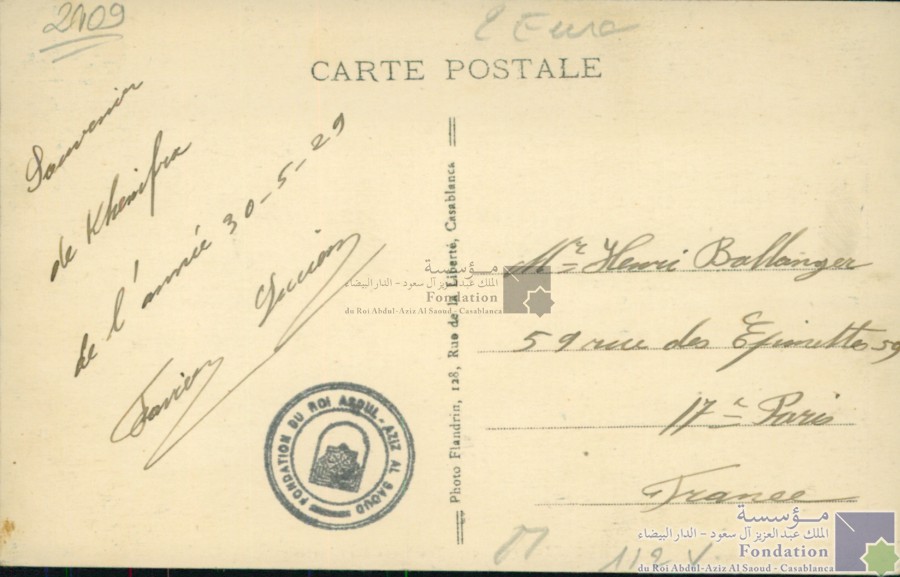 2109
2 Euro
CARTE POSTALE
Souvenir
de Khenifra
de l'année 30-5-29
Lucien
Photo Flandrin, 128, Rue de la Liberté, Casablanca
Mr Henri Ballanger
59 rue des Epinettes 59
17e Paris
France
FONDATION DU ROI ABDUL-AZIZ AL SAOUD
مؤسسة
الملك عبد العزيز آل سعود - الدار البيضاء
Fondation
du Roi Abdul-Aziz Al Saoud - Casablanca
مؤسسة
الملك عبد العزيز آل سعود - الدار البيضاء
Fondation
du Roi Abdul-Aziz Al Saoud - Casablanca